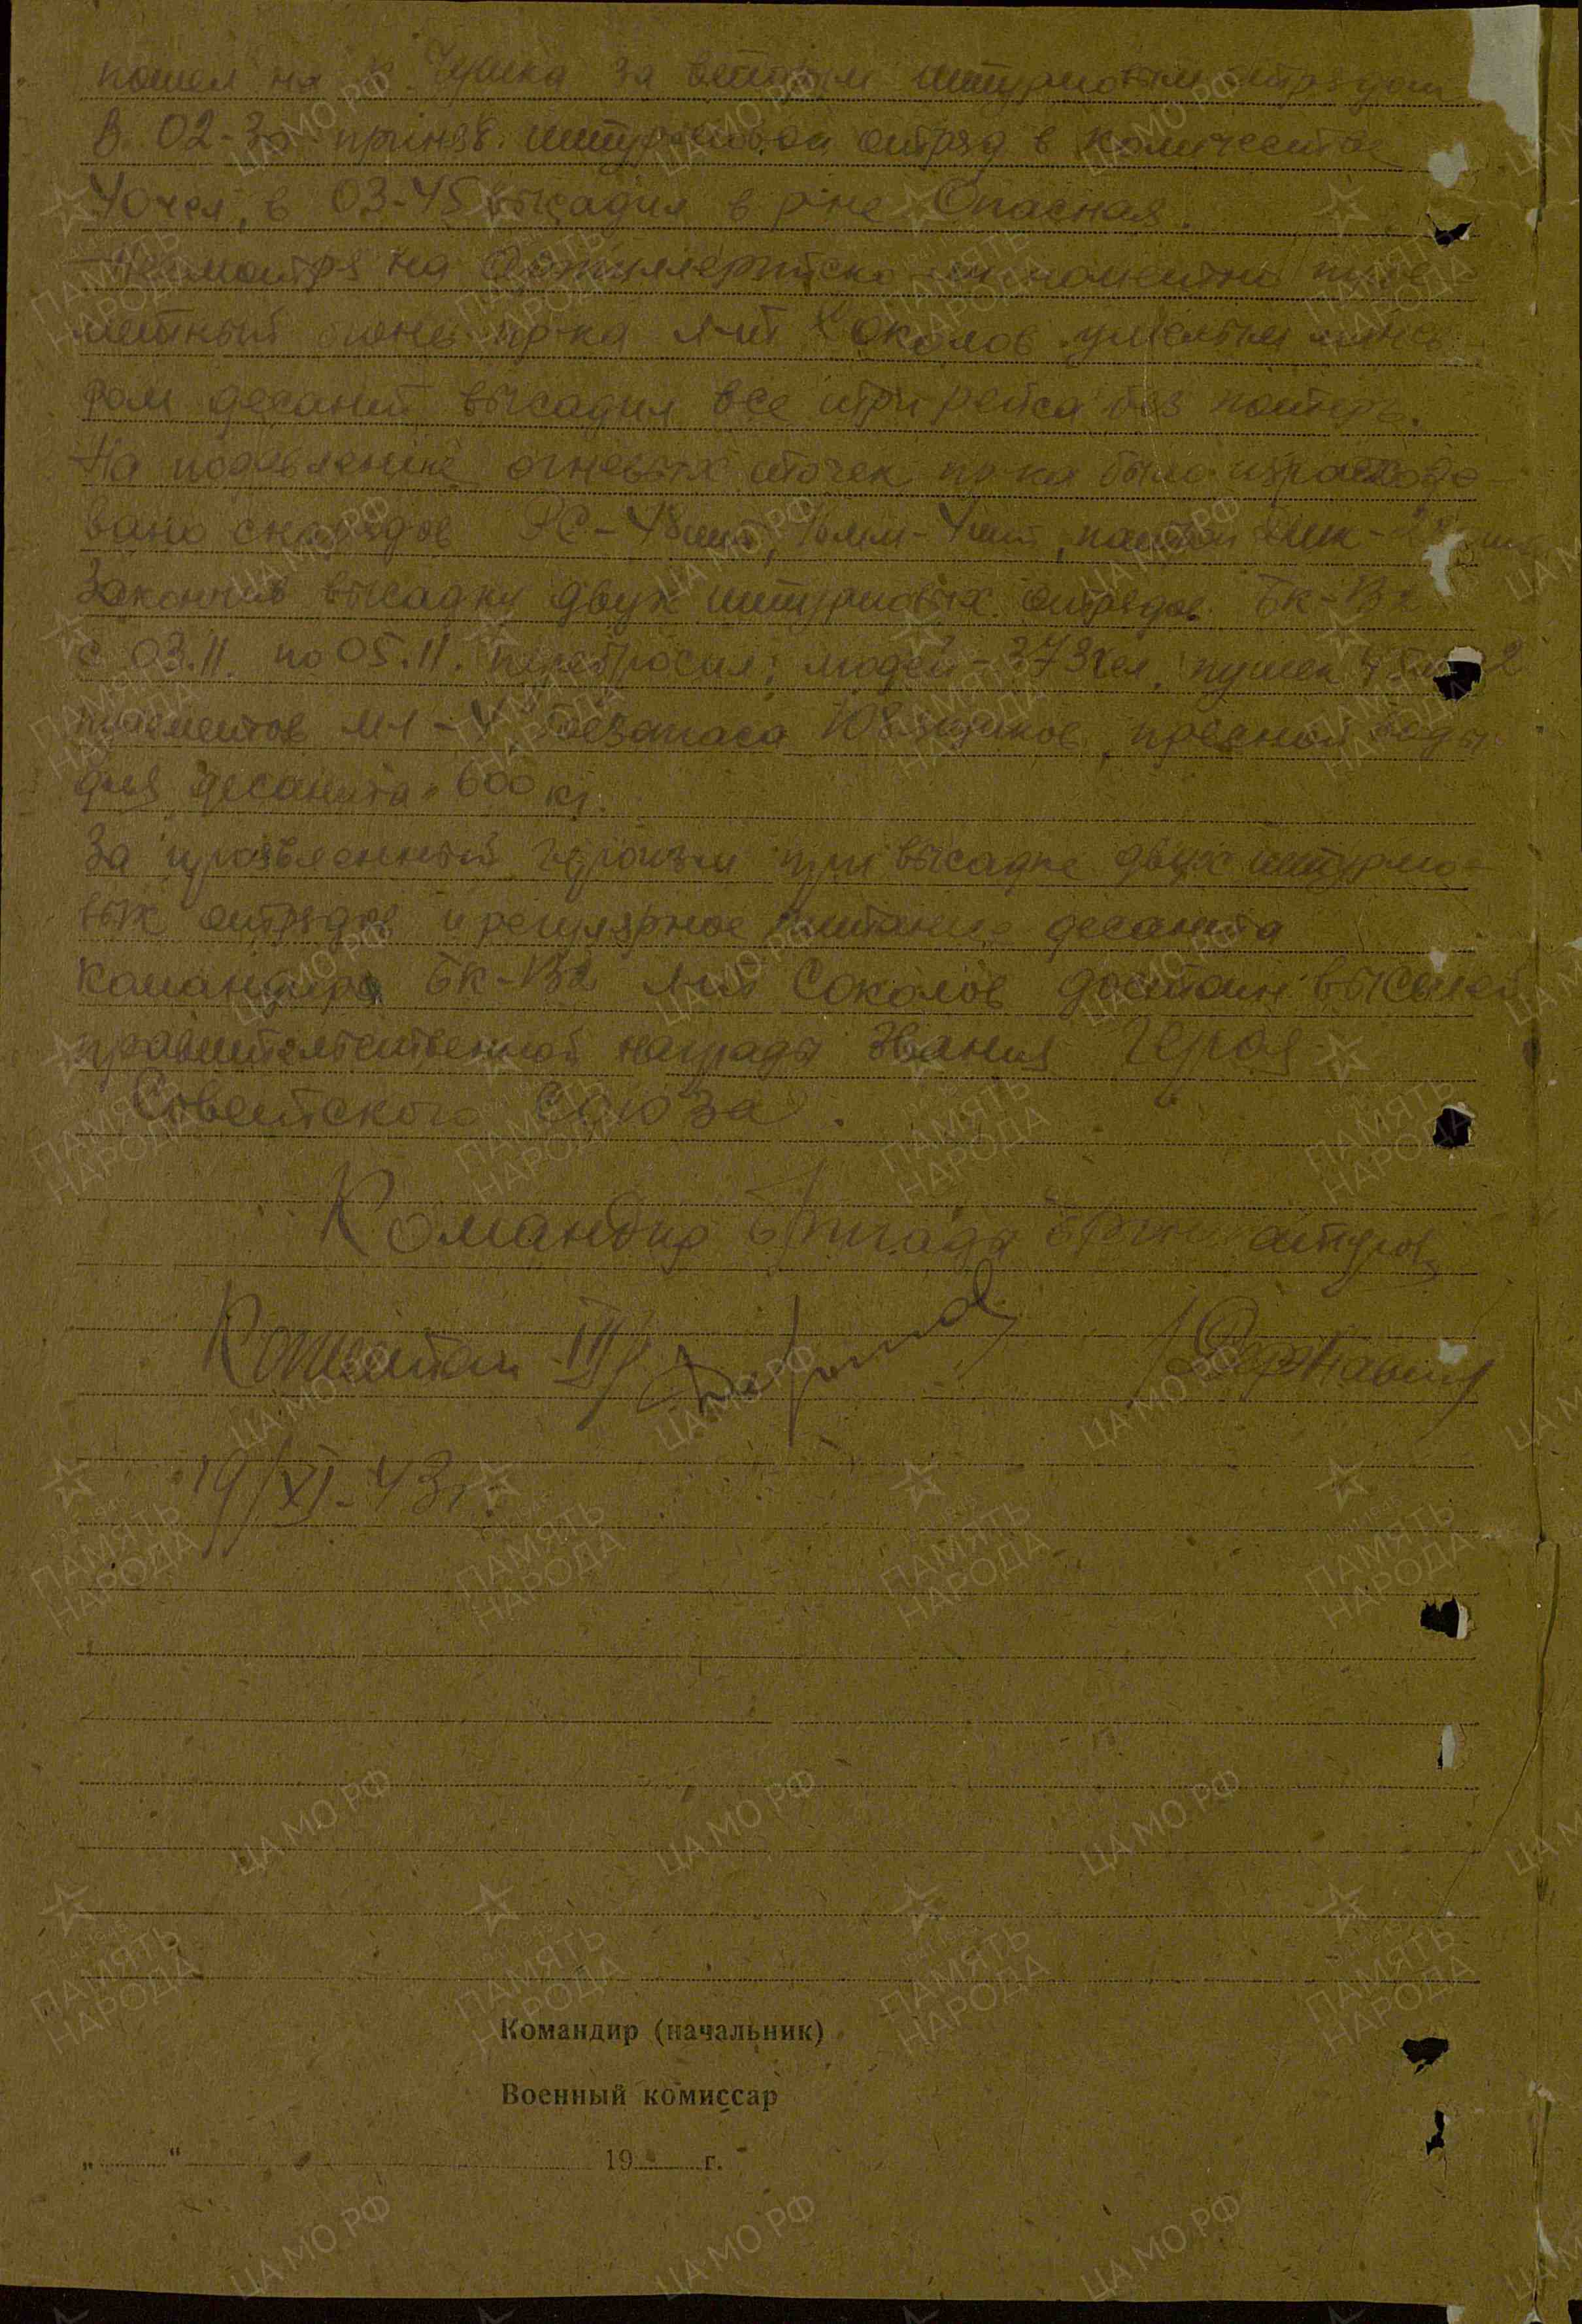 пошел на к. Чушка за вторым штурмовым отрядом
В 02-30 приняв штурмовой отряд в количестве
40 чел, в 03-45 высадил в р-не Опасная.
Несмотря на Артиллерийско- пуле-
метный огонь пр-ка л-т Соколов умелым манев-
ром десант высадил все три рейса без потерь.
На подавление огневых точек пр-ка было израсходо-
вано снарядов РС-48шт, мм-4шт,
Закончив высадку двух штурмовых отрядов БК-132
с 03.11. по 05.11. перебросил: людей-373чел, пушек 45мм 2
пулеметов М-1-4, боезапаса 108 ящиков, пресной воды
для десанта 600 кг.
За проявленный героизм при высадке двух штурмо-
вых отрядов и регулярное питание десанта
командира БК-132 л-т Соколов достоин высшей
правительственной награды звания Героя
Советского Союза.
Командир бригады
Капитан III р /Державин/
19/XI-43г.
Командир (начальник)
Военный комиссар
„ “ 19 г.
ЦА МО РФ
1941-1945
ПАМЯТЬ
НАРОДА